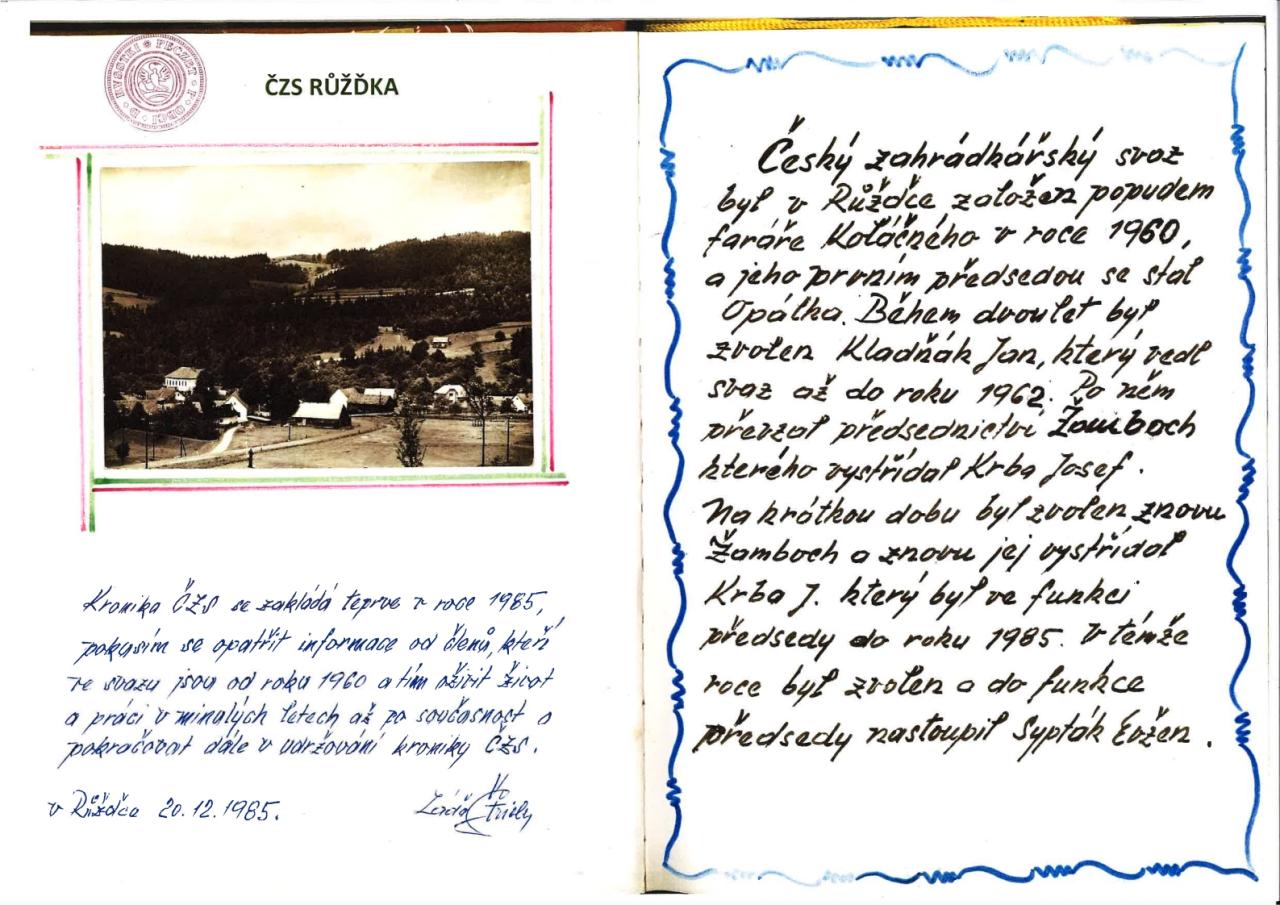 PECZET
ČZS RŮŽĎKA
Kronika ČZS se zakládá teprve v roce 1985,
pokusím se opatřit informace od členů, kteří
ve svazu jsou od roku 1960 a tím oživit život
a práci v minulých letech až po současnost a
pokračovat dále v udržování kroniky ČZS.
v Růžďce 20.12.1985.
Český zahrádkářský svaz
byl v Růžďce založen popudem
faráře Koláčného v roce 1960,
a jeho prvním předsedou se stal
Opálka. Během dvoulet byl
zvolen Kladňák Jan, který vedl
svaz až do roku 1962. Po něm
převzal předsednictví Žamboch
kterého vystřídal Krba Josef.
Na krátkou dobu byl zvolen znovu
Žamboch a znovu jej vystřídal
Krba J. který byl ve funkci
předsedy do roku 1985. V témže
roce byl zvolen a do funkce
předsedy nastoupil Sypták Evžen.